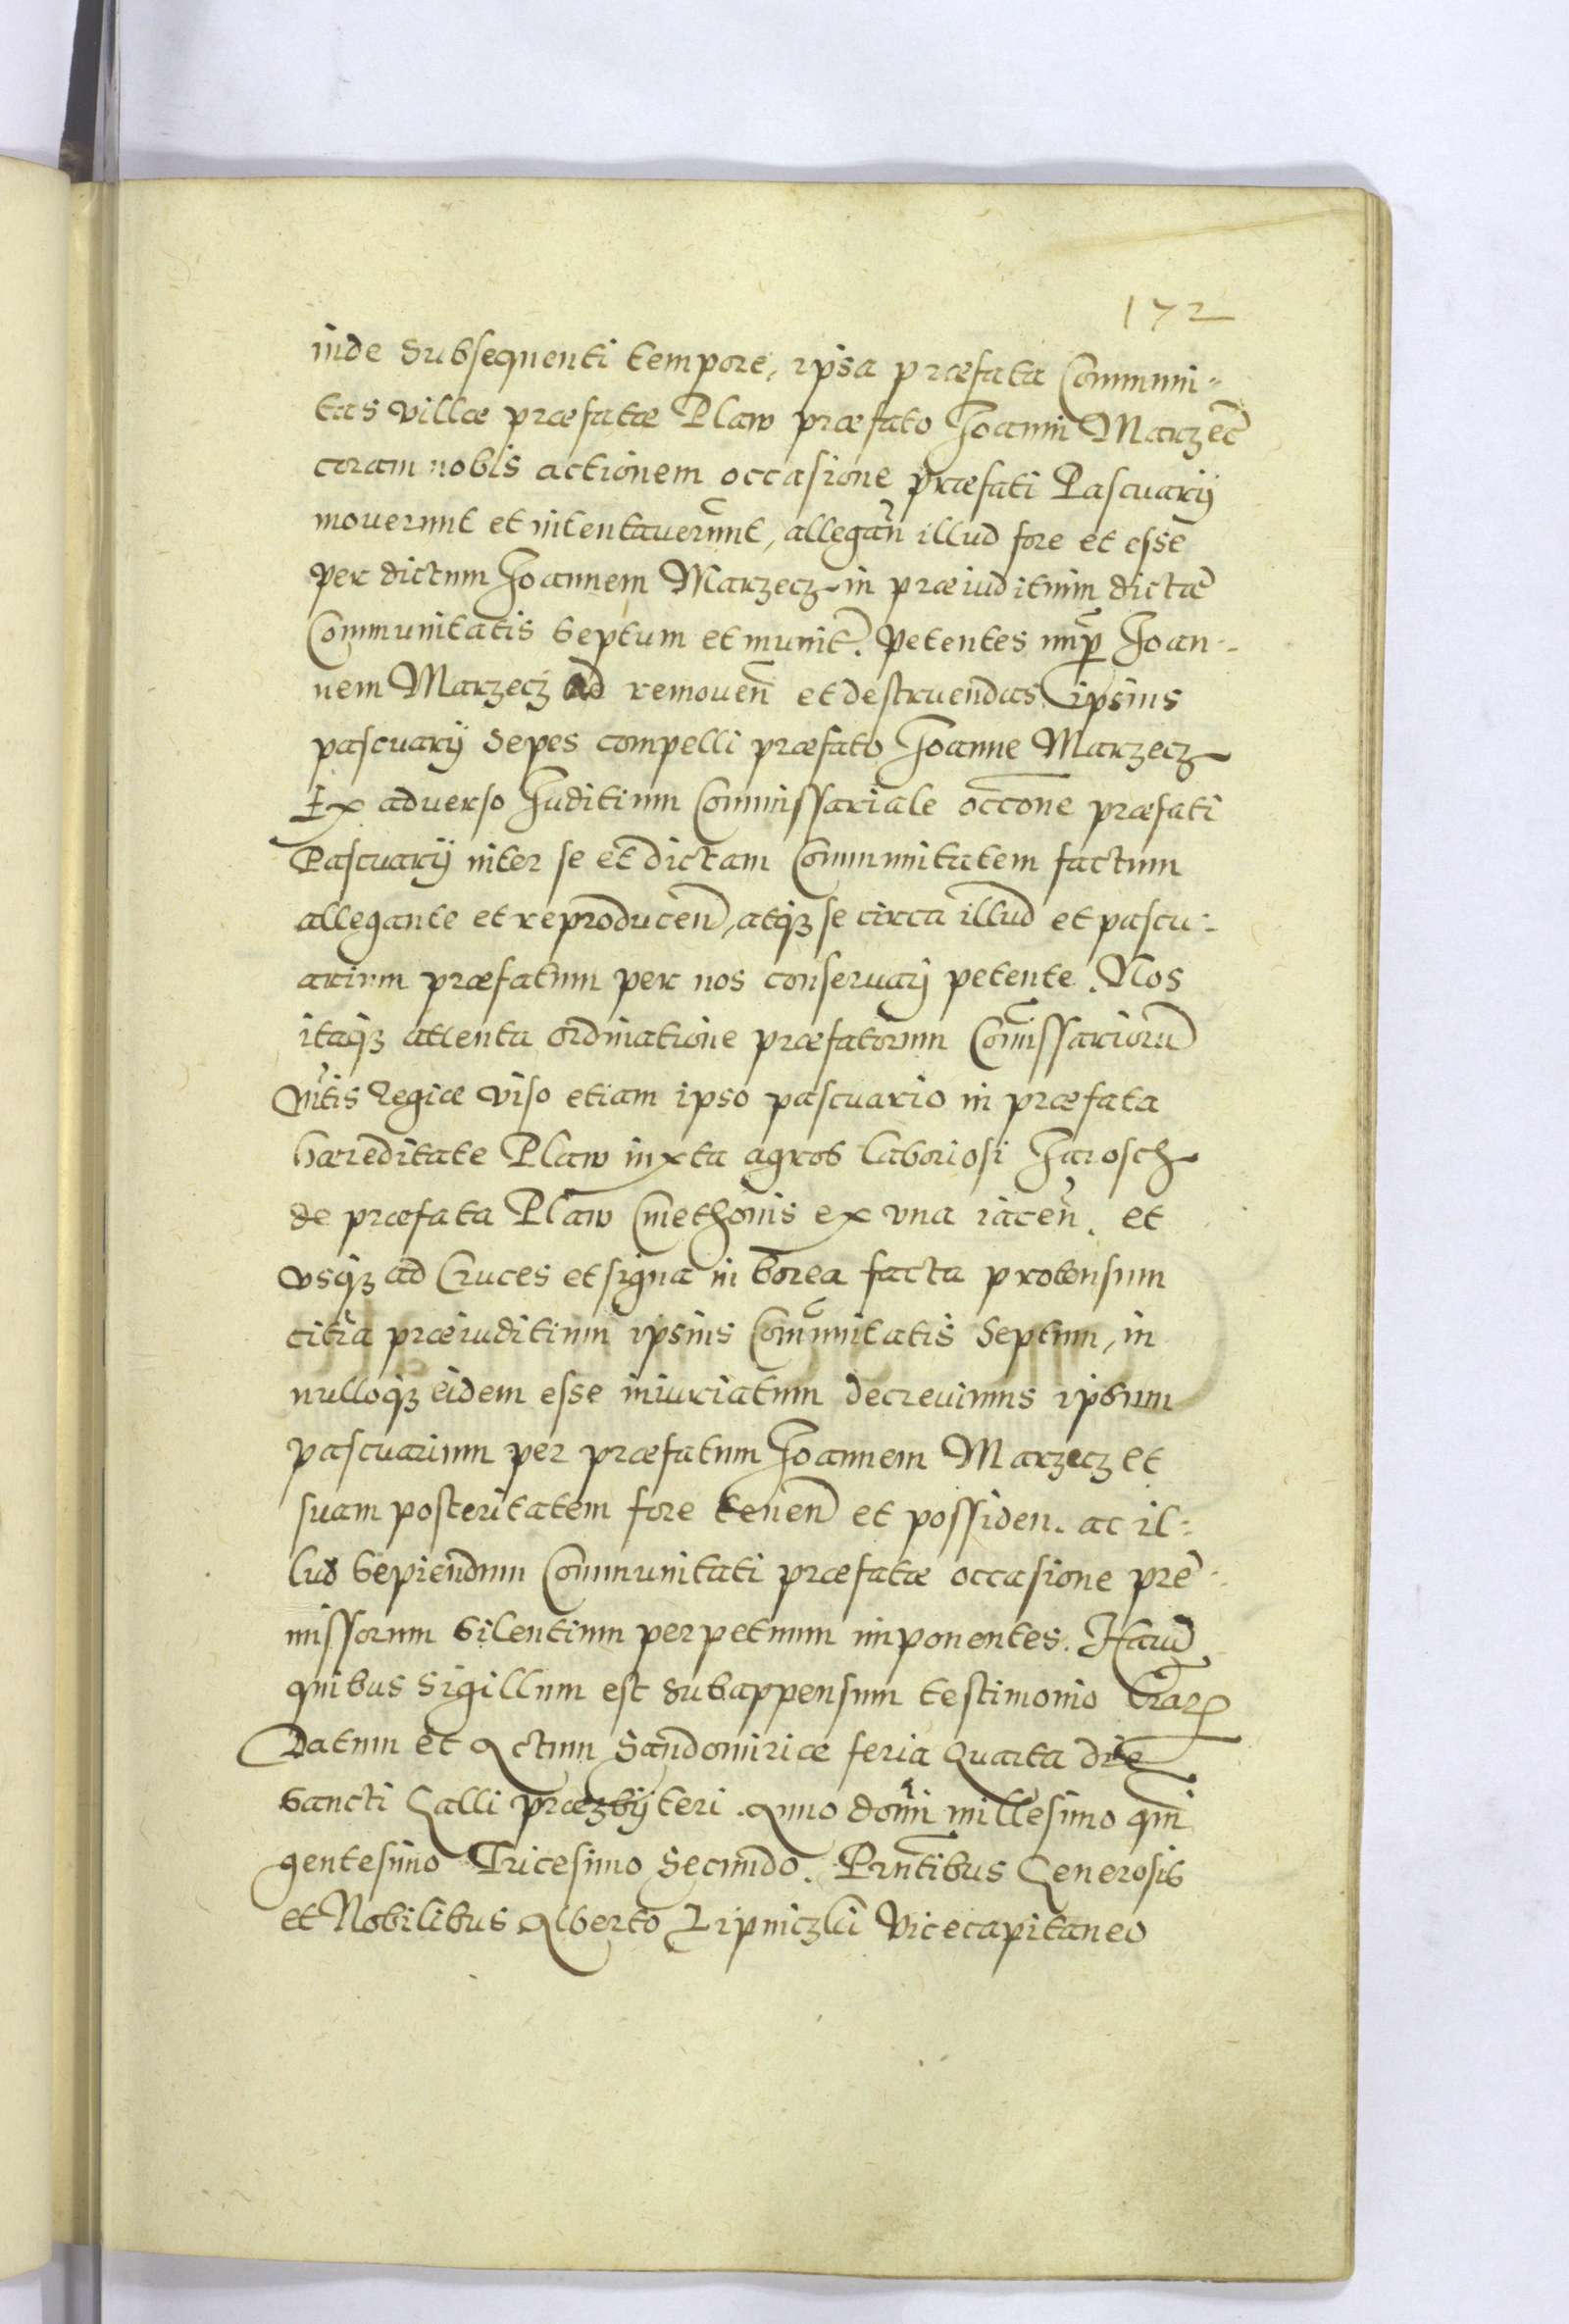 172
inde subsequenti tempore, ipsa præfata Communi-
tas villæ præfatæ Plaw præfato Joanni Marzecz
coram nobis actionem occasione præfati Pascuarij
moverunt et intentaverunt, allegan illud fore et esse
per dictum Joannem Marzecz in præiuditium dictæ
Communitatis septum et munit. Petentes Joan-
nem Marzecz ad removen et destruendas ipsius
pascuarij sepes compelli præfato Joanne Marzecz
Ex adverso Juditium Commissariale occone præfati
Pascuarij inter se et dictam Communitatem factum
allegante et reproducen, atq3 se circa illud et pascu-
arium præfatum per nos conservarij petente. Nos
itaq3 attenta ordinatione præfatorum Comissariorum
Mtis Regiæ viso etiam ipso pascuario in præfata
hæreditate Plaw iuxta agros laboriosi Jarosch
de præfata Plaw Cmethonis ex una iacen. et
usq3 ad Cruces et signa in borea facta protensum
citra præiuditium ipsius Comunitatis septum, in
nulloq3 eidem esse iniuriatum decrevimus ipsum
pascuarium per præfatum Joannem Marzecz et
suam posteritatem fore tenen et possiden. ac il-
lud sepiendum Communitati præfatæ occasione pre-
missorum silentium perpetuum imponentes. Harum
quibus Sigillum est subappensum testimonio lrarum
Datum et Actum Sandomiriæ feria Quarta die
Sancti Galli præzbyteri Anno domini millesimo quin
gentesimo Tricesimo Secundo. Prntibus Generosis
et Nobilibus Alberto Lipniczki Vicecapitaneo